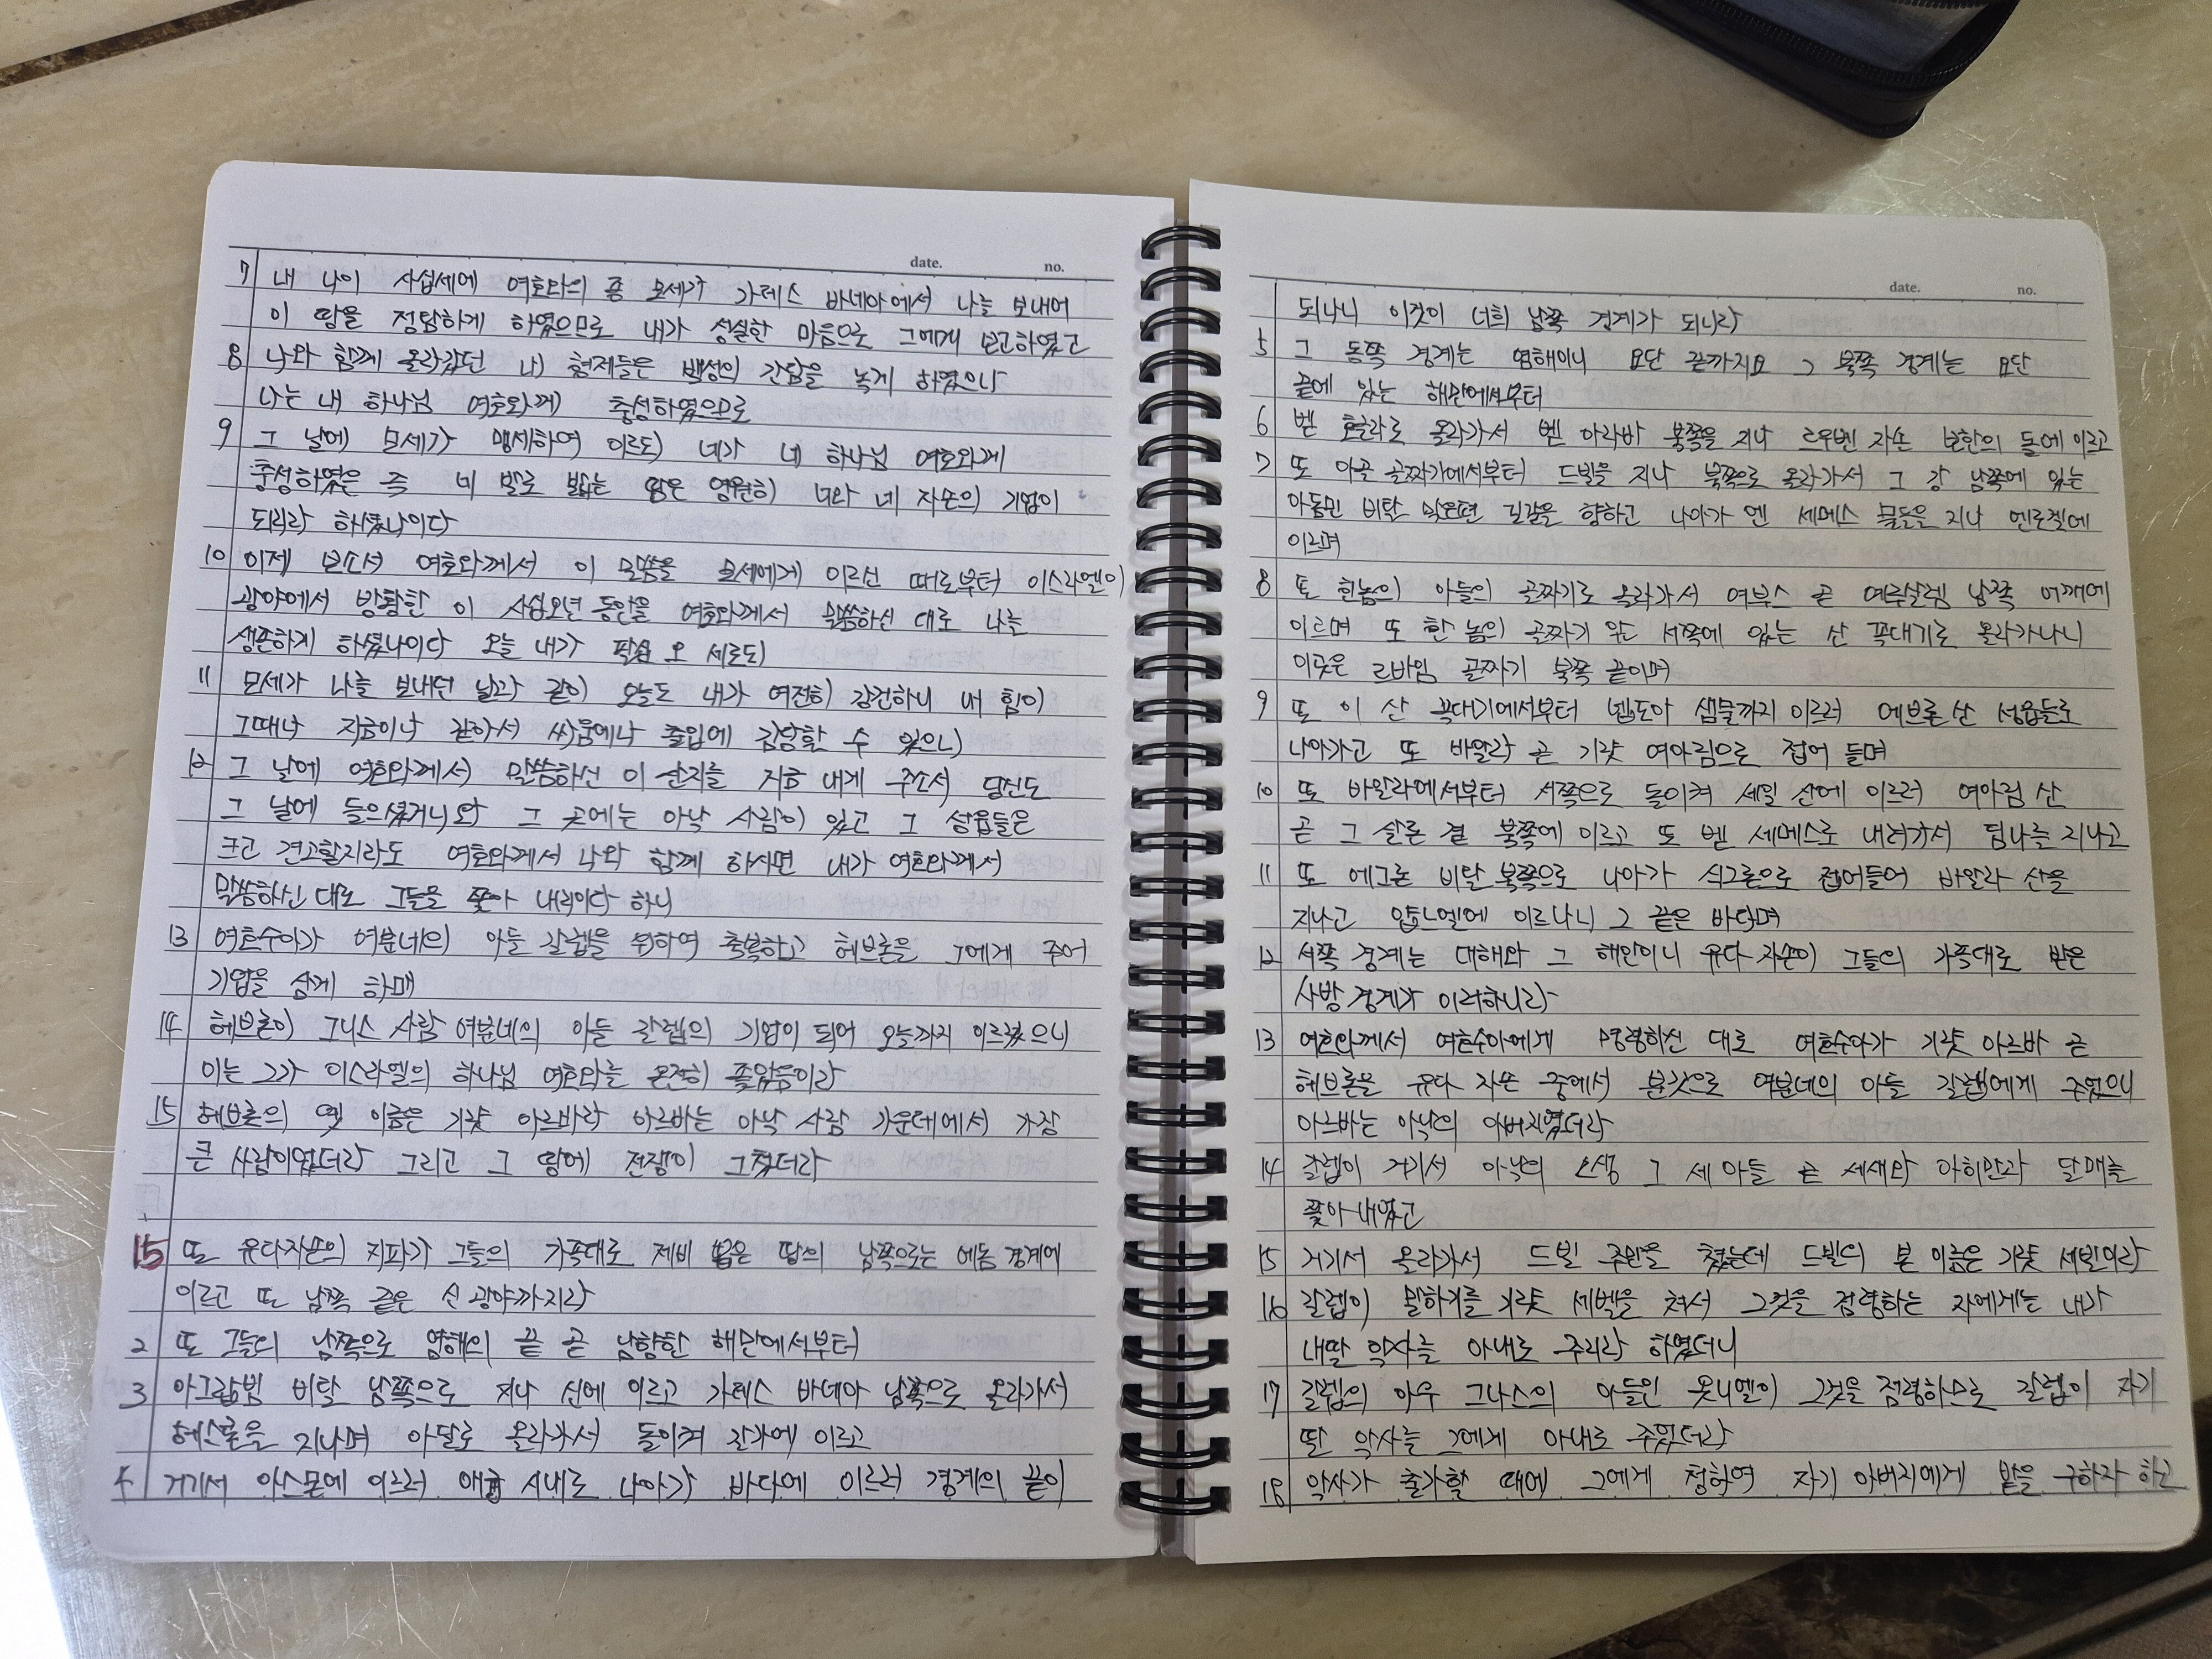 date. no.
7 내 나이 사십세에 여호와의 종 모세가 가데스 바네아에서 나를 보내어
이 땅을 정탐하게 하였으므로 내가 성실한 마음으로 그에게 보고하였고
8 나와 함께 올라갔던 내 형제들은 백성의 간담을 녹게 하였으나
나는 내 하나님 여호와께 충성하였으므로
9 그 날에 모세가 맹세하여 이르되 네가 네 하나님 여호와께
충성하였은 즉 네 발로 밟는 땅은 영원히 너와 네 자손의 기업이
되리라 하셨나이다
10 이제 보소서 여호와께서 이 말씀을 모세에게 이르신 때로부터 이스라엘이
광야에서 방황한 이 사십오년 동안을 여호와께서 말씀하신 대로 나를
생존하게 하셨나이다 오늘 내가 팔십 오 세로되
11 모세가 나를 보내던 날과 같이 오늘도 내가 여전히 강건하니 내 힘이
그때나 지금이나 같아서 싸움에나 출입에 감당할 수 있으니
12 그 날에 여호와께서 말씀하신 이 산지를 지금 내게 주소서 당신도
그 날에 들으셨거니와 그 곳에는 아낙 사람이 있고 그 성읍들은
크고 견고할지라도 여호와께서 나와 함께 하시면 내가 여호와께서
말씀하신 대로 그들을 쫓아 내리이다 하니
13 여호수아가 여분네의 아들 갈렙을 위하여 축복하고 헤브론을 그에게 주어
기업을 삼게 하매
14 헤브론이 그니스 사람 여분네의 아들 갈렙의 기업이 되어 오늘까지 이르렀으니
이는 그가 이스라엘의 하나님 여호와를 온전히 쫓았음이라
15 헤브론의 옛 이름은 기럇 아르바라 아르바는 아낙 사람 가운데에서 가장
큰 사람이었더라 그리고 그 땅에 전쟁이 그쳤더라
15 또 유다자손의 지파가 그들의 가족대로 제비 뽑은 땅의 남쪽으로는 에돔 경계에
이르고 또 남쪽 끝은 신 광야까지라
2 또 그들의 남쪽으로 염해의 끝 곧 남향한 해만에서부터
3 아그랍빔 비탈 남쪽으로 지나 신에 이르고 가데스 바네아 남쪽으로 올라가서
헤스론을 지나며 아달로 올라가서 돌이켜 갈가에 이르고
4 거기서 아스몬에 이르러 애굽 시내로 나아가 바다에 이르러 경계의 끝이
date. no.
되나니 이것이 너희 남쪽 경계가 되니라
5 그 동쪽 경계는 염해이니 요단 끝까지요 그 북쪽 경계는 요단
끝에 있는 해만에서부터
6 벧 호글라로 올라가서 벧 아라바 북쪽을 지나 르우벤 자손 보한의 돌에 이르고
7 또 아골 골짜기에서부터 드빌을 지나 북쪽으로 올라가서 그 강 남쪽에 있는
아둠밈 비탈 맞은편 길갈을 향하고 나아가 엔 세메스 물들을 지나 엔로겔에
이르며
8 또 힌놈의 아들의 골짜기로 올라가서 여부스 곧 예루살렘 남쪽 어깨에
이르며 또 힌놈의 골짜기 앞 서쪽에 있는 산 꼭대기로 올라가나니
이곳은 르바임 골짜기 북쪽 끝이며
9 또 이 산 꼭대기에서부터 넵도아 샘물까지 이르러 에브론 산 성읍들로
나아가고 또 바알라 곧 기럇 여아림으로 접어 들며
10 또 바알라에서부터 서쪽으로 돌이켜 세일 산에 이르러 여아림 산
곧 그 살론 곁 북쪽에 이르고 또 벧 세메스로 내려가서 딤나를 지나고
11 또 에그론 비탈 북쪽으로 나아가 식그론으로 접어들어 바알라 산을
지나고 얍느엘에 이르나니 그 끝은 바다며
12 서쪽 경계는 대해와 그 해안이니 유다 자손이 그들의 가족대로 받은
사방 경계가 이러하니라
13 여호와께서 여호수아에게 명령하신 대로 여호수아가 기럇 아르바 곧
헤브론을 유다 자손 중에서 분깃으로 여분네의 아들 갈렙에게 주었으니
아르바는 아낙의 아버지였더라
14 갈렙이 거기서 아낙의 소생 그 세 아들 곧 세새와 아히만과 달매를
쫓아내었고
15 거기서 올라가서 드빌 주민을 쳤는데 드빌의 본 이름은 기럇 세벨이라
16 갈렙이 말하기를 기럇 세벨을 쳐서 그것을 점령하는 자에게는 내가
내딸 악사를 아내로 주리라 하였더니
17 갈렙의 아우 그나스의 아들인 옷니엘이 그것을 점령하므로 갈렙이 자기
딸 악사를 그에게 아내로 주었더라
18 악사가 출가할 때에 그에게 청하여 자기 아버지에게 밭을 구하자 하고